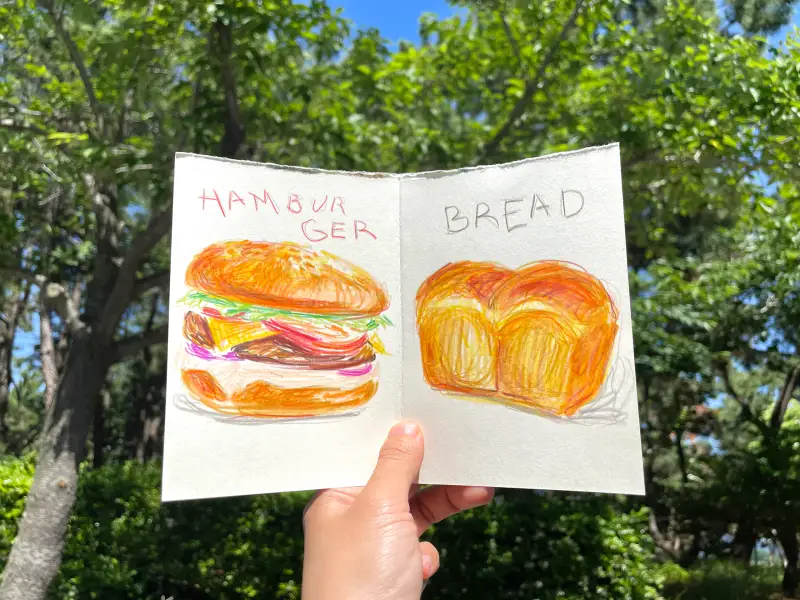 HAMBUR
GER
BREAD